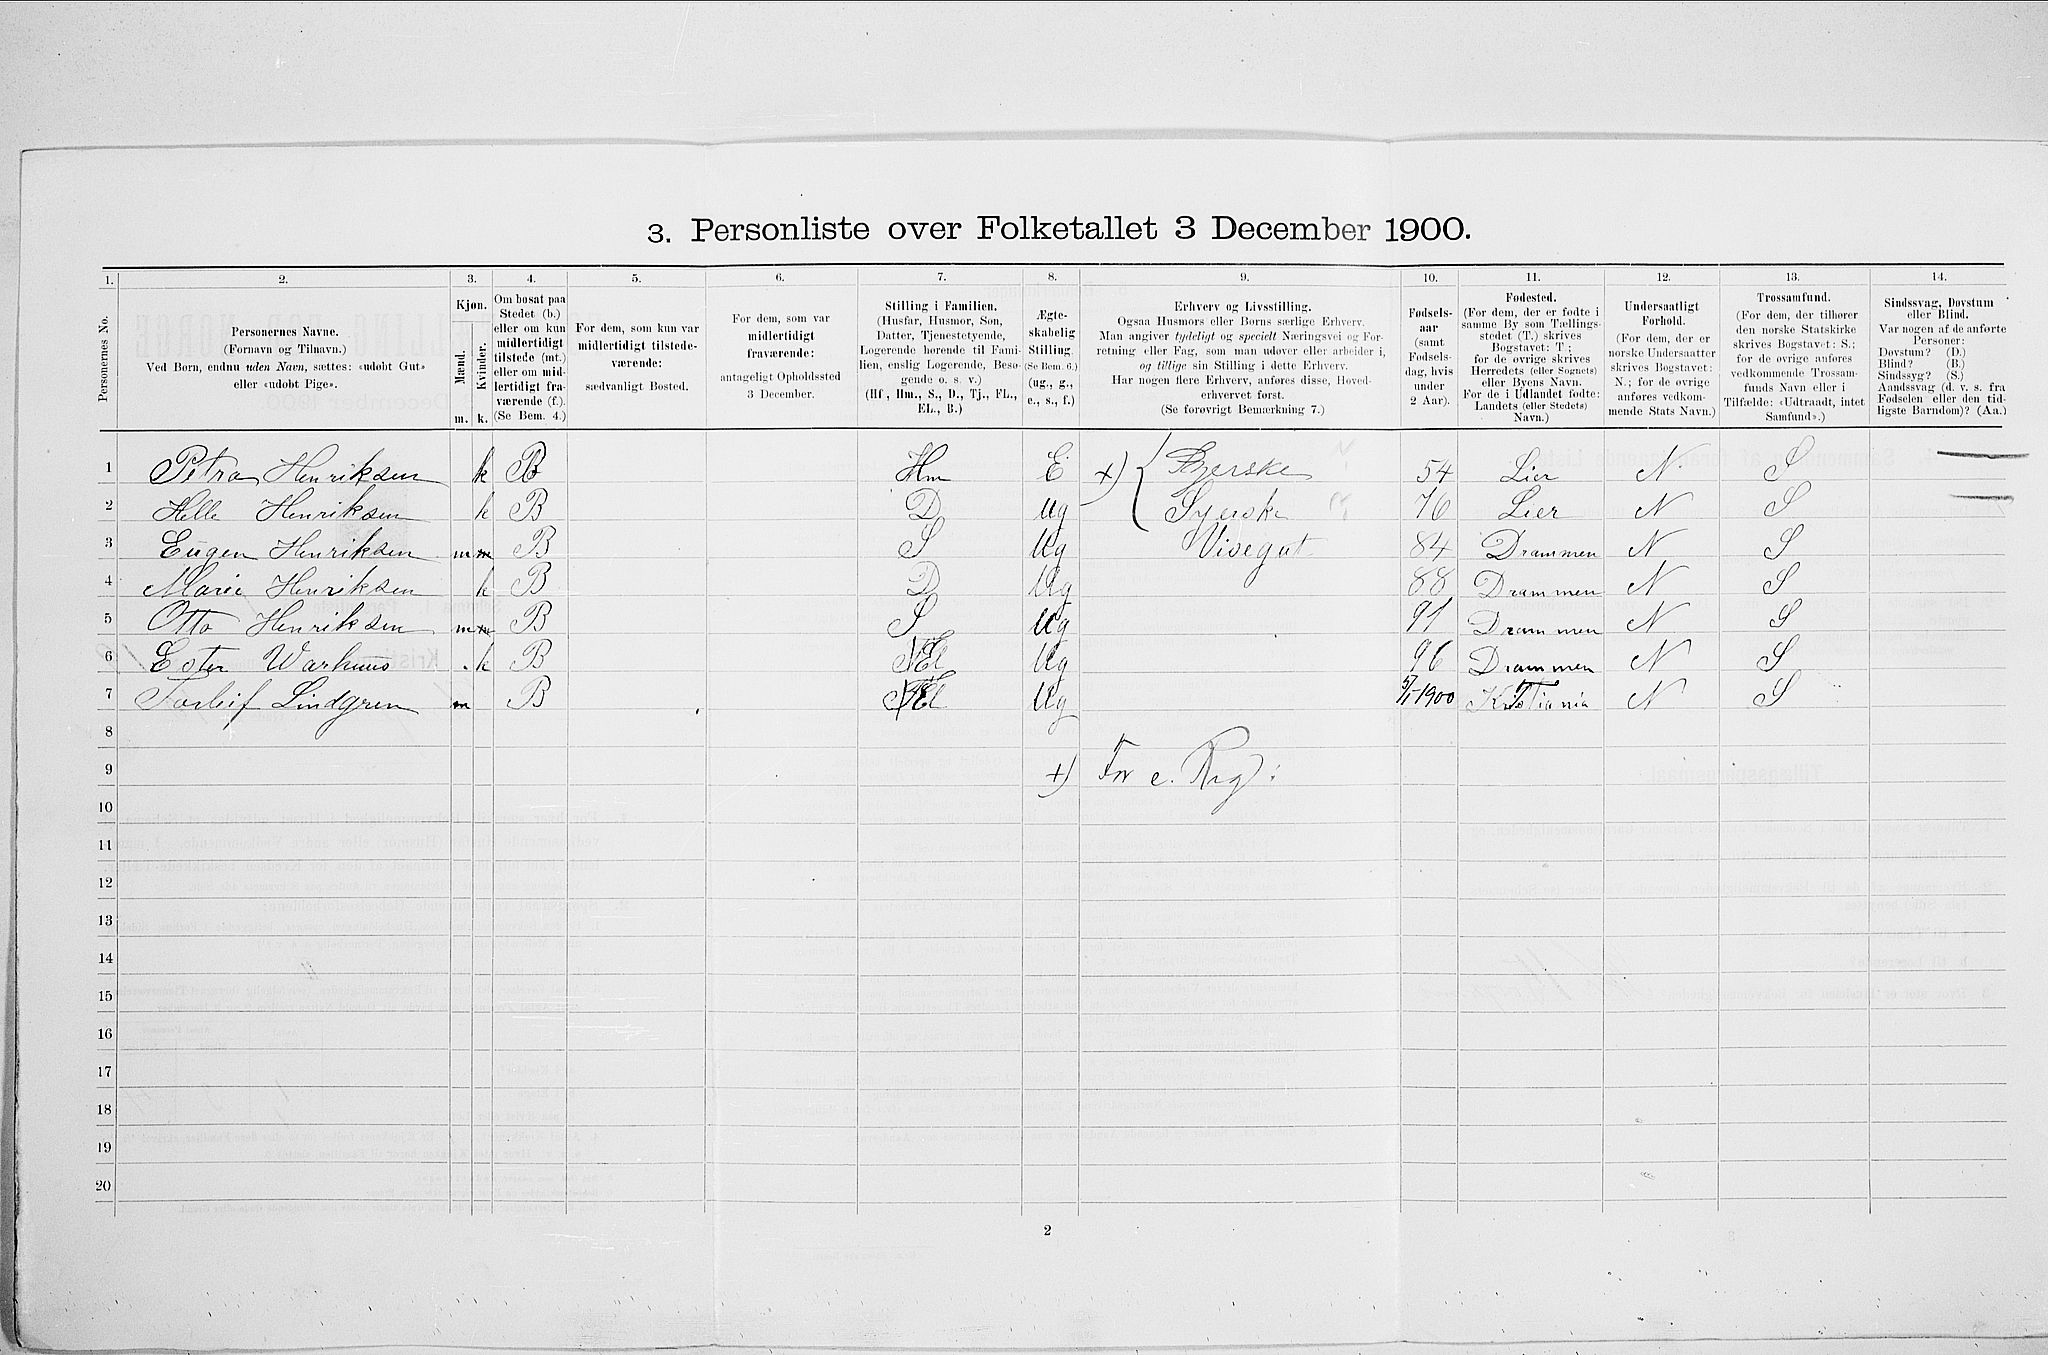 3. Personliste over Folketallet 3 December 1900.
1. 2. 3. 4. 5. 6. 7. 8. 9. 10. 11. 12. 13. 14.
Personernes No.
Personernes Navne.
(Fornavn og Tilnavn.)
Ved Børn, endnu uden Navn, sættes: «udøbt Gut»
eller «udøbt Pige».
Kjøn.
Mænd.
Kvinder.
m. k.
Om bosat paa
Stedet (b.)
eller om kun
midlertidigt
tilstede (mt.)
eller om mid-
lertidigt fra-
værende (f.).
(Se Bem. 4.)
For dem, som kun var
midlertidigt tilstede-
værende:
sædvanligt Bosted.
For dem, som var
midlertidigt
fraværende:
antageligt Opholdssted
3 December.
Stilling i Familien.
(Husfar, Husmor, Søn,
Datter, Tjenestetyende,
Logerende hørende til Fami-
lien, enslig Logerende, Besø-
gende o. s. v.)
(Hf., Hm., S., D., Tj., FL.,
EL., B.)
Ægte-
skabelig
Stilling.
(Se Bem. 6.)
(ug., g.,
e., s., f.)
Erhverv og Livsstilling.
Ogsaa Husmors eller Børns særlige Erhverv.
Man angiver tydeligt og specielt Næringsvei og For-
retning eller Fag, som man udøver eller arbeider i,
og tillige sin Stilling i dette Erhverv.
Har nogen flere Erhverv, anføres disse, Hoved-
erhvervet først.
(Se forøvrigt Bemærkning 7.)
Fødsels-
aar
(samt
Fødsels-
dag, hvis
under
2 Aar).
Fødested.
(For dem, der er fødte i
samme By som Tællings-
stedet (T.) skrives
Bogstavet: T;
for de øvrige skrives
Herredets (eller Sognets)
eller Byens Navn.
For de i Udlandet fødte:
Landets (eller Stedets)
Navn.)
Undersaatligt
Forhold.
(For dem, der er
norske Undersaatter
skrives Bogstavet:
N.; for de øvrige
anføres vedkom-
mende Stats Navn.)
Trossamfund.
(For dem, der tilhører
den norske Statskirke
skrives Bogstavet: S.;
for de øvrige anføres
vedkommende Trossam-
funds Navn eller i
Tilfælde: «Udtraadt, intet
Samfund».)
Sindssvag, Døvstum
eller Blind.
Var nogen af de anførte
Personer:
Døvstum? (D.)
Blind? (B.)
Sindssyg? (S.)
Aandssvag (d. v. s. fra
Fødselen eller den tid-
ligste Barndom)? (Aa.)
1 Petra Henriksen k B Hm E +) Syerske 54 Lier N S
2 Helle Henriksen k B D Ug Syerske 76 Lier N S
3 Eugen Henriksen m B S Ug Visegut 84 Drammen N S
4 Marie Henriksen k B D Ug 88 Drammen N S
5 Otto Henriksen m B S Ug 91 Drammen N S
6 Ester Warhuus k B El Ug 96 Drammen N S
7 Torleif Lindgren m B El Ug 5/1-1900 Kristiania N S
8
9 +) For e. Rrg:
10
11
12
13
14
15
16
17
18
19
20
2